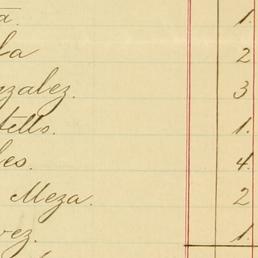 a. 1.
la 2
nzalez. 3
tello. 1.
les. 4.
Meza. 2
vez. 1.